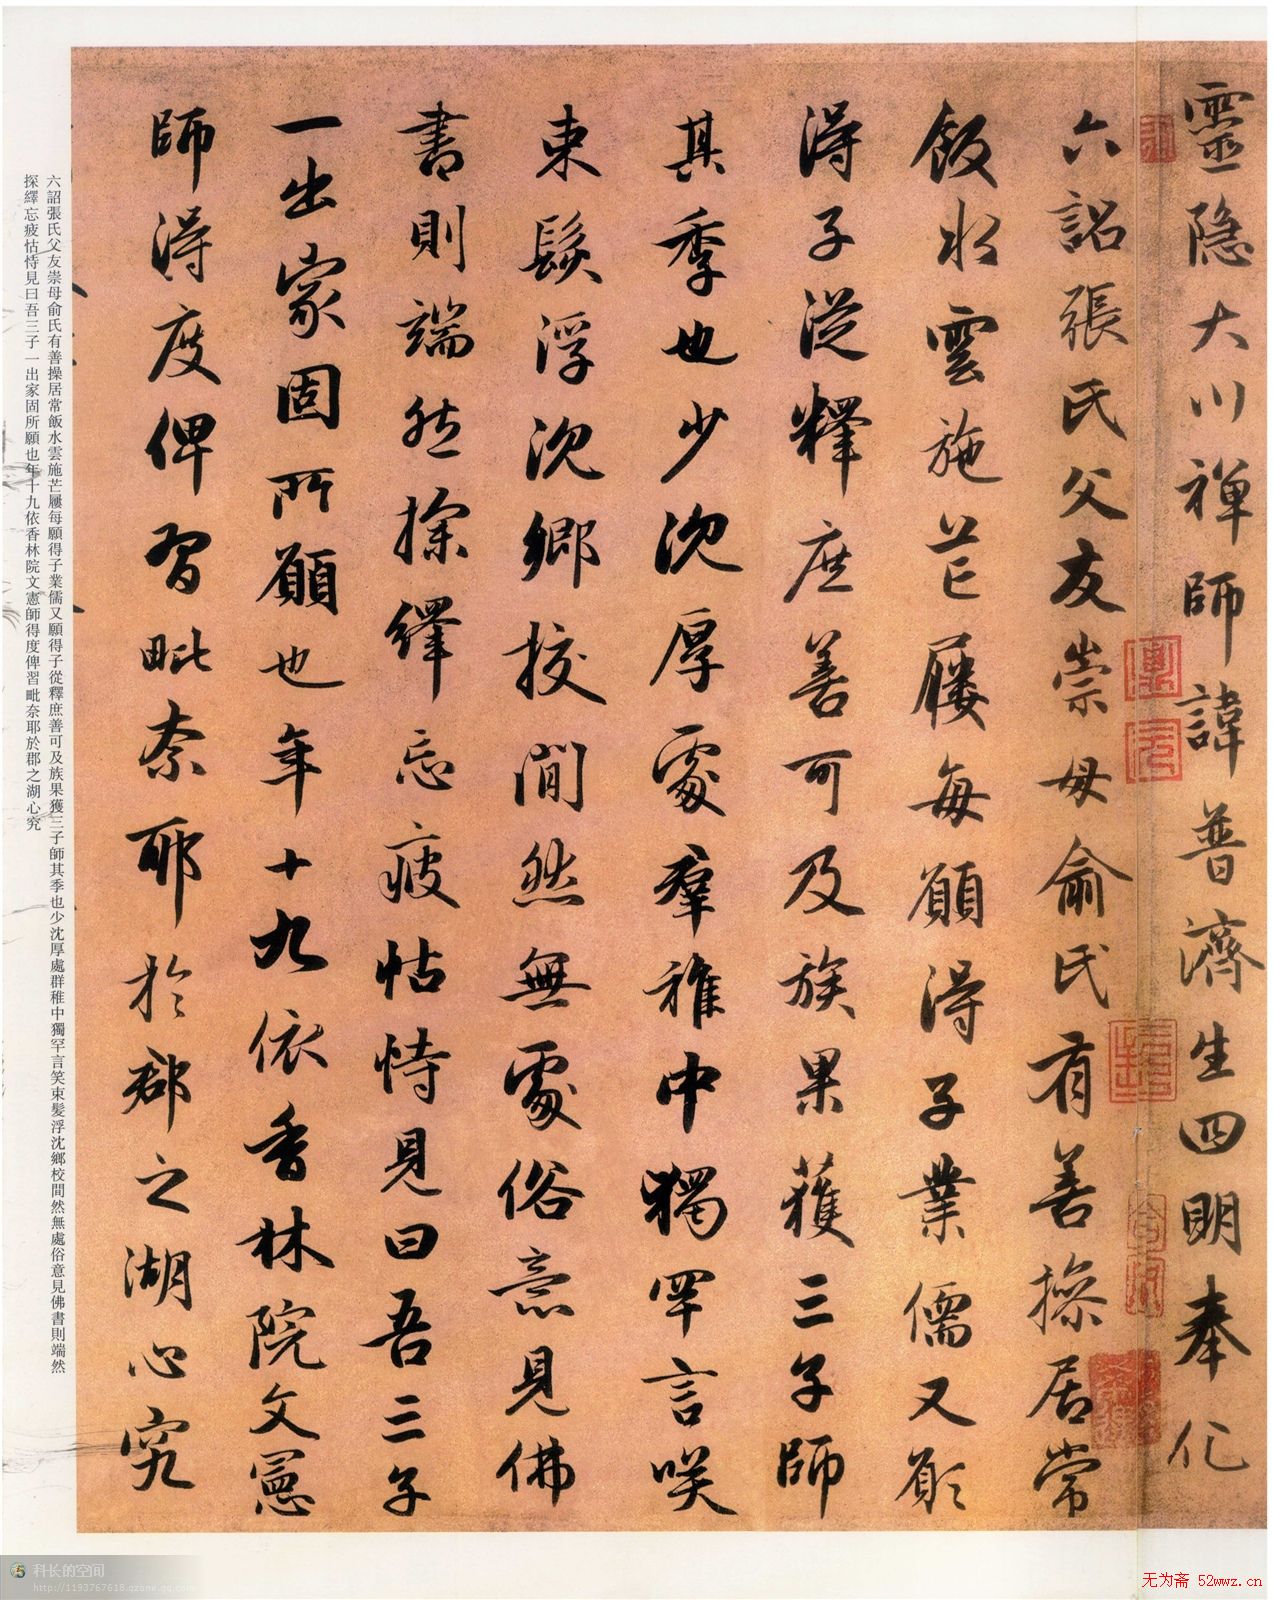 靈隱大川禅師諱普濟生四明奉化
六詔張氏父友崇母俞氏有善操居常
飯水雲施芒屨每願得子業儒又願
得子從釋庶善可及族果獲三子師
其季也少沈厚處羣稚中獨罕言咲
束髮浮沈鄉校閒然無處俗意見佛
書則端然探繹忘疲怙恃見曰吾三子
一出家固所願也年十九依香林院文憲
師得度俾習毗奈耶於郡之湖心究
六詔張氏父友崇母俞氏有善操居常飯水雲施芒屨每願得子業儒又願得子從釋庶善可及族果獲三子師其季也少沈厚處群稚中獨罕言笑束髮浮沈鄉校間然無處俗意見佛書則端然
探繹忘疲怙恃見曰吾三子一出家固所願也年十九依香林院文憲師得度俾習毗奈耶於郡之湖心究
科长的空间
http://1193767618.qzone.qq.com
无为斋 52wwz.cn